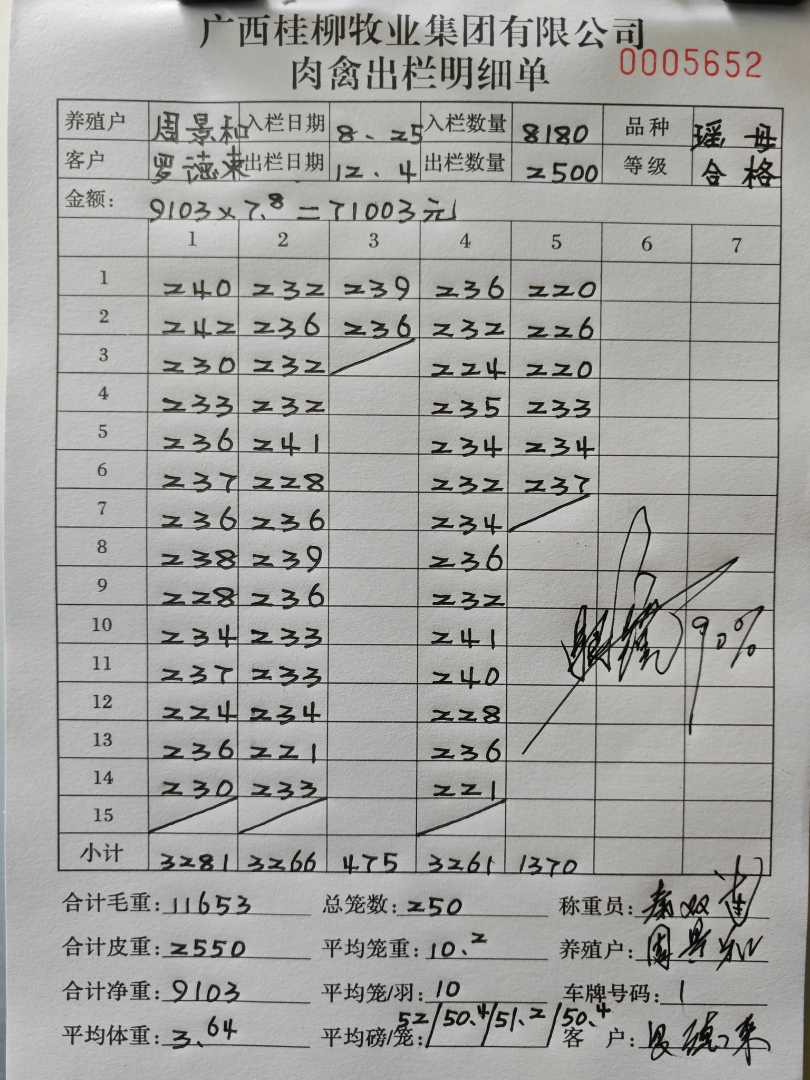 广西桂柳牧业集团有限公司
肉禽出栏明细单 0005652
养殖户 周景和 入栏日期 8.25 入栏数量 8180 品种 瑶母
客户 罗德来 出栏日期 12.4 出栏数量 2500 等级 合格
金额: 9103×7.8=71003元
1 2 3 4 5 6 7
1 240 232 239 236 220
2 242 236 236 232 226
3 230 232 224 220
4 233 232 235 233
5 236 241 234 234
6 237 228 232 237
7 236 236 234
8 238 239 236
9 228 236 232
10 234 233 241 90%
11 237 233 240
12 224 234 228
13 236 221 236
14 230 233 221
15
小计 3281 3266 475 3261 1370
合计毛重: 11653 总笼数: 250 称重员: 秦双
合计皮重: 2550 平均笼重: 10.2 养殖户: 周景和
合计净重: 9103 平均笼/羽: 10 车牌号码: 1
平均体重: 3.64 平均磅/笼: 52/50.4/51.2/50.4 客户: 罗德来